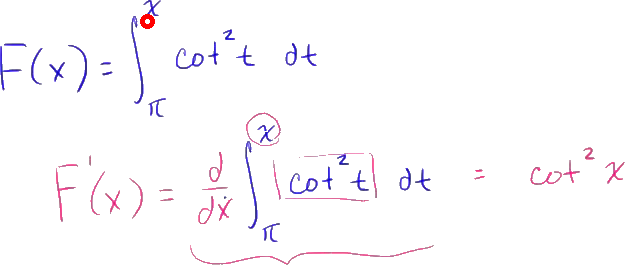 F(x) = ∫_π^x cot²t dt
F'(x) = d/dx ∫_π^x cot²t dt = cot² x